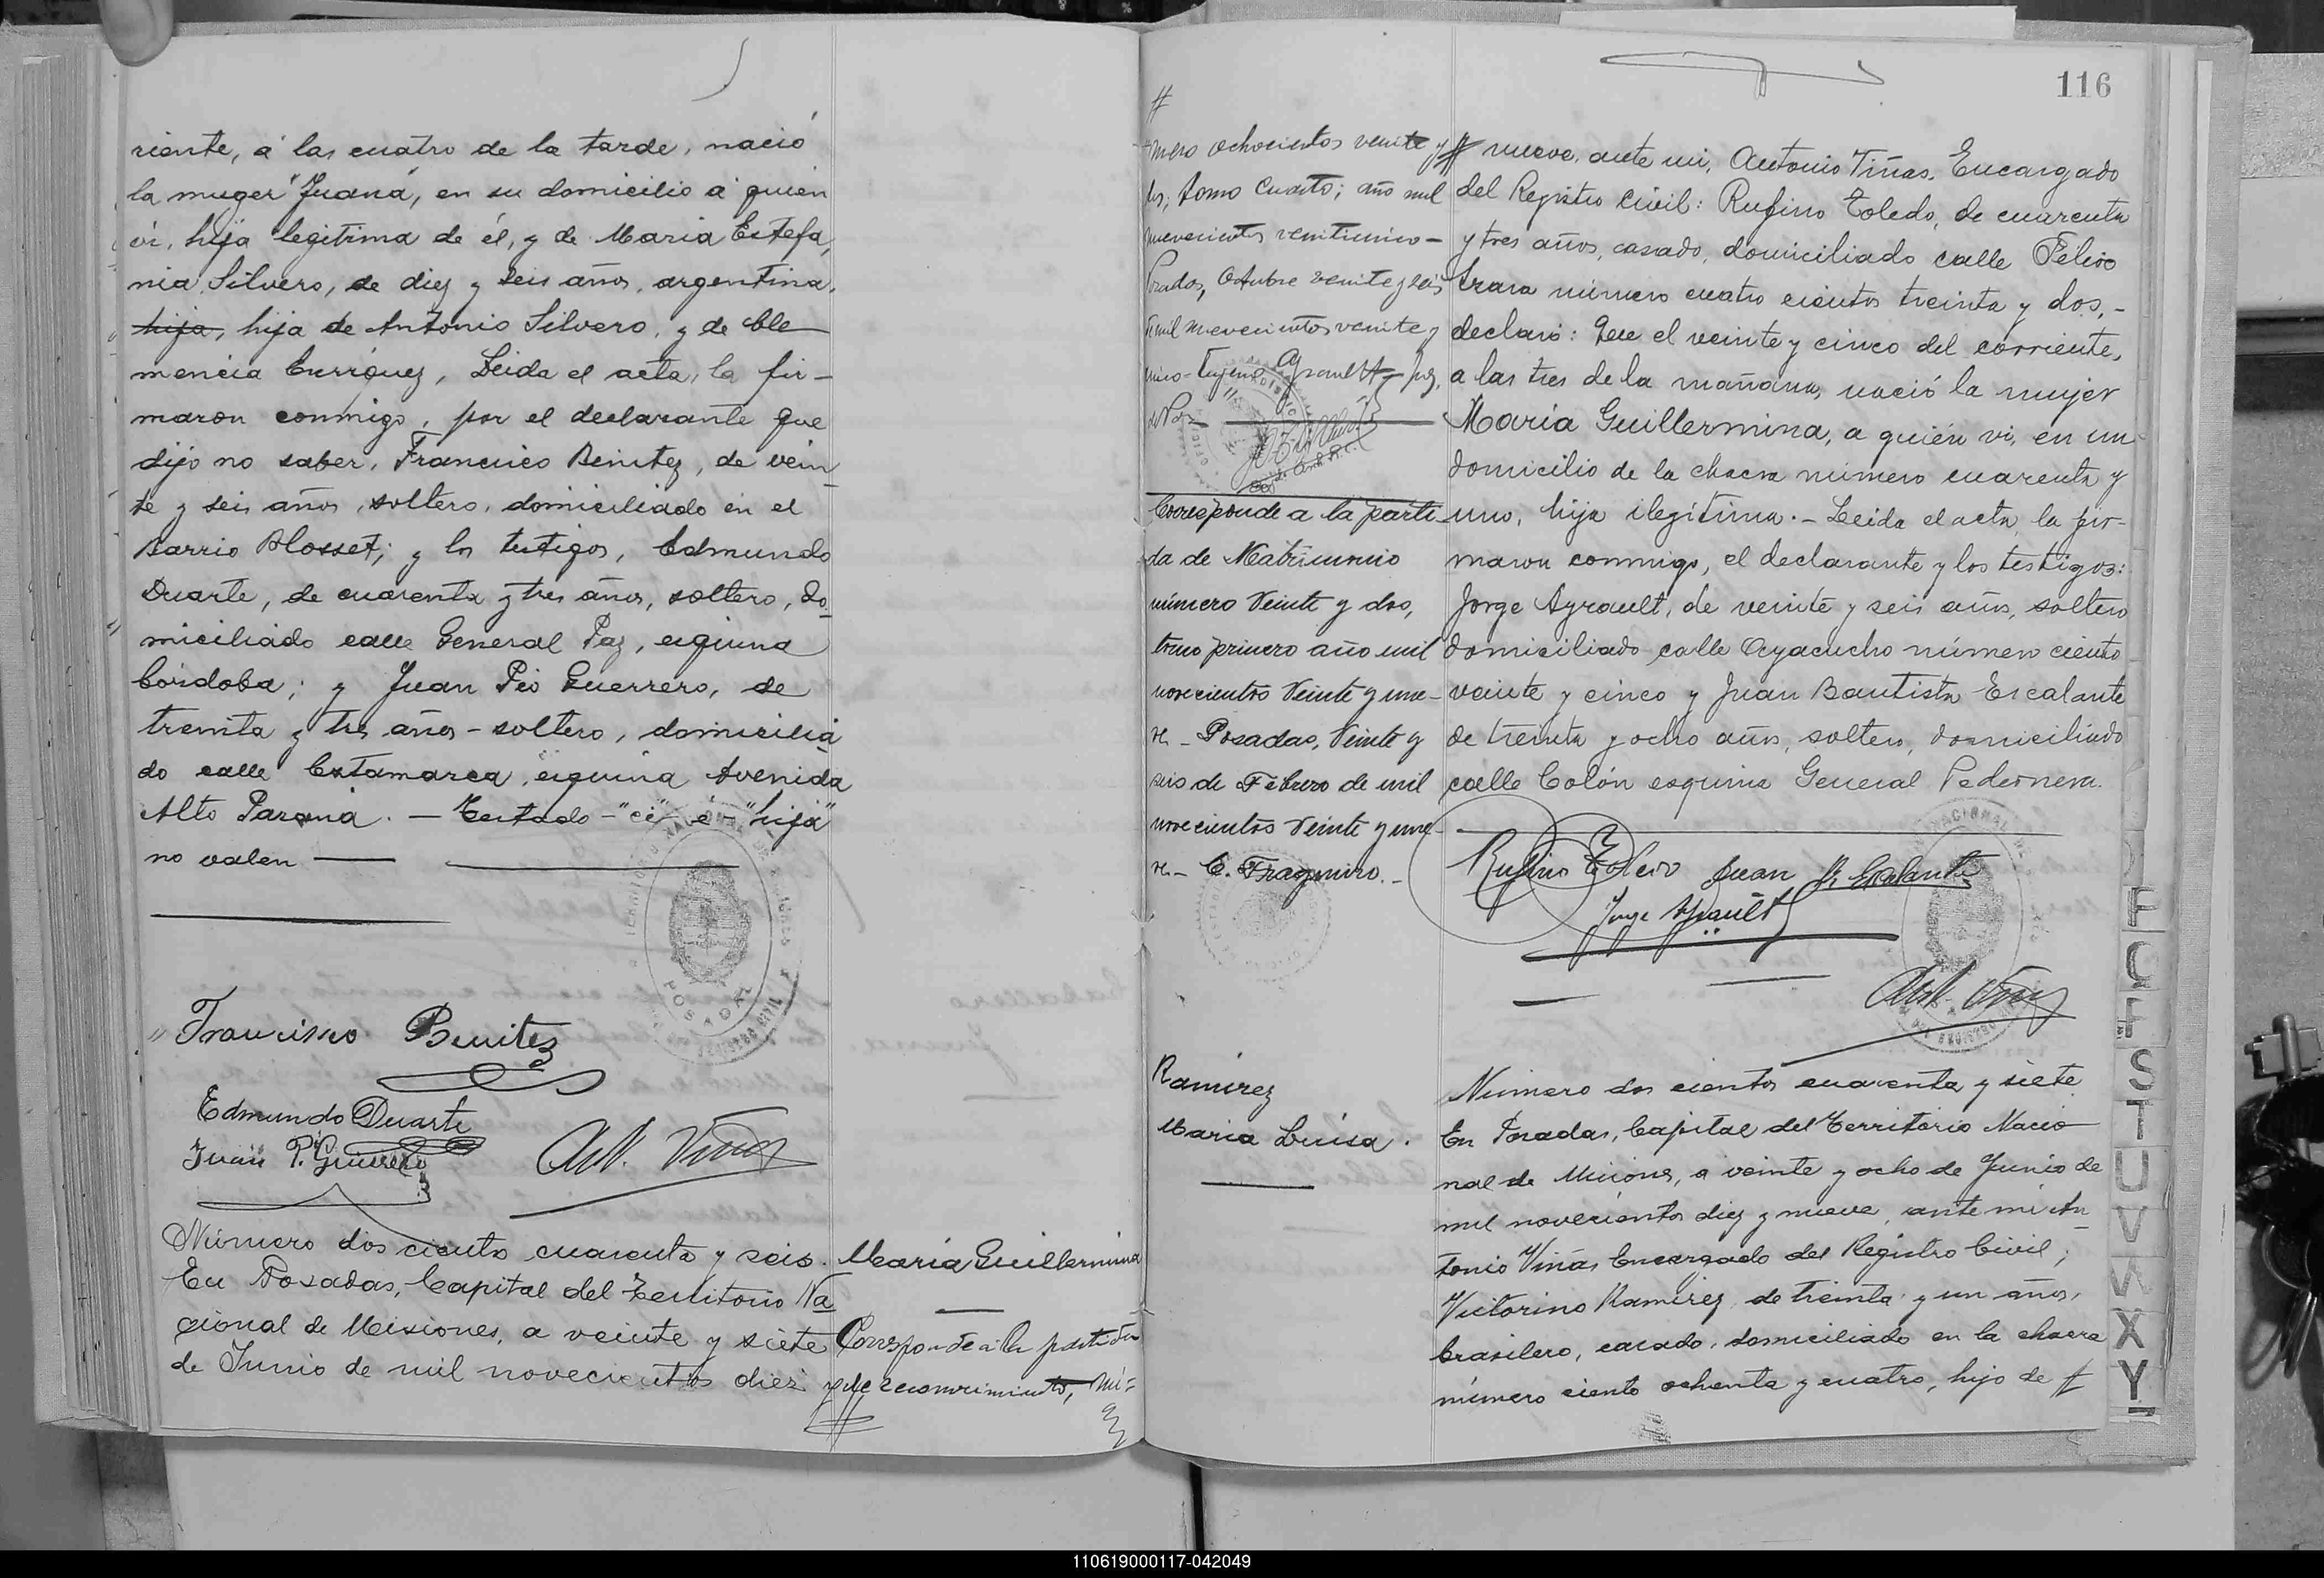 riente, á las cuatro de la tarde, nació
la muger "Juana", en su domicilio a quien
vi, hija legitima de él, y de Maria Estefa,
nia Silvero, de diez y seis años, argentina,
hija, hija de Antonio Silvero, y de Cle
mencia Enriquez, Leida el acta, la fir-
maron conmigo, por el declarante que
dijo no saber, Francisco Benitez, de vein
te y seis años, soltero, domiciliado en el
Barrio Blosset; y los testigos, Edmundo
Duarte, de cuarenta y tres años, soltero, do
miciliado calle General Paz, esquina
Córdoba; y Juan Pio Guerrero, de
treinta y tres años - soltero, domicilia
do calle Catamarca, esquina Avenida
Alto Parana. — Testado - "ci" é - "hija"
no valen —
POSADAS
REGISTRO CIVIL
Francisco Benitez
Edmundo Duarte
Juan P. Guerrero
Ant. Viñas
Número dos ciento cuarenta y seis.
En Posadas, Capital del Territorio Na
cional de Misiones, a veinte y siete
de Junio de mil novecientos diez y
María Guillermina
Corresponde a la partida
de reconocimiento, nú-
116
mero ochocientos veinte y
dos, tomo Cuarto; año mil
novecientos veintiuno -
Posadas, Octubre veinte y seis
de mil novecientos veinte y
uno - Eugenio Ayrault
Corresponde a la parti-
da de Matrimonio
número Veinte y dos,
tomo primero año mil
novecientos Veinte y nue-
ve - Posadas, Veinte y
seis de Febrero de mil
novecientos Veinte y nue-
ve - C. Fragueiro. -
nueve, ante mi, Antonio Viñas, Encargado
del Registro Civil: Rufino Toledo, de cuarenta
y tres años, casado, domiciliado calle Felix
Azara número cuatro cientos treinta y dos, -
declaró: Que el veinte y cinco del corriente,
a las tres de la mañana, nació la mujer
María Guillermina, a quién vi, en un
domicilio de la chacra número cuarenta y
uno, hija ilegítima. - Leida el acta, la fir-
maron conmigo, el declarante y los testigos:
Jorge Ayrault, de veinte y seis años, soltero
domiciliado calle Ayacucho número ciento
veinte y cinco y Juan Bautista Escalante
de treinta y ocho años, soltero, domiciliado
calle Colón esquina General Pedernera.
Rufino Toledo Juan B. Escalante
Jorge Ayrault
Ant. Viñas
Ramirez
Maria Luisa.
Número dos cientos cuarenta y siete
En Posadas, Capital del Territorio Nacio
nal de Misiones, a veinte y ocho de Junio de
mil novecientos diez y nueve, ante mi An
tonio Viñas Encargado del Registro Civil;
Victorino Ramirez, de treinta y un años,
brasilero, casado, domiciliado en la chacra
número ciento ochenta y cuatro, hijo de
S
T
U
V
W
X
Y
110619000117-042049